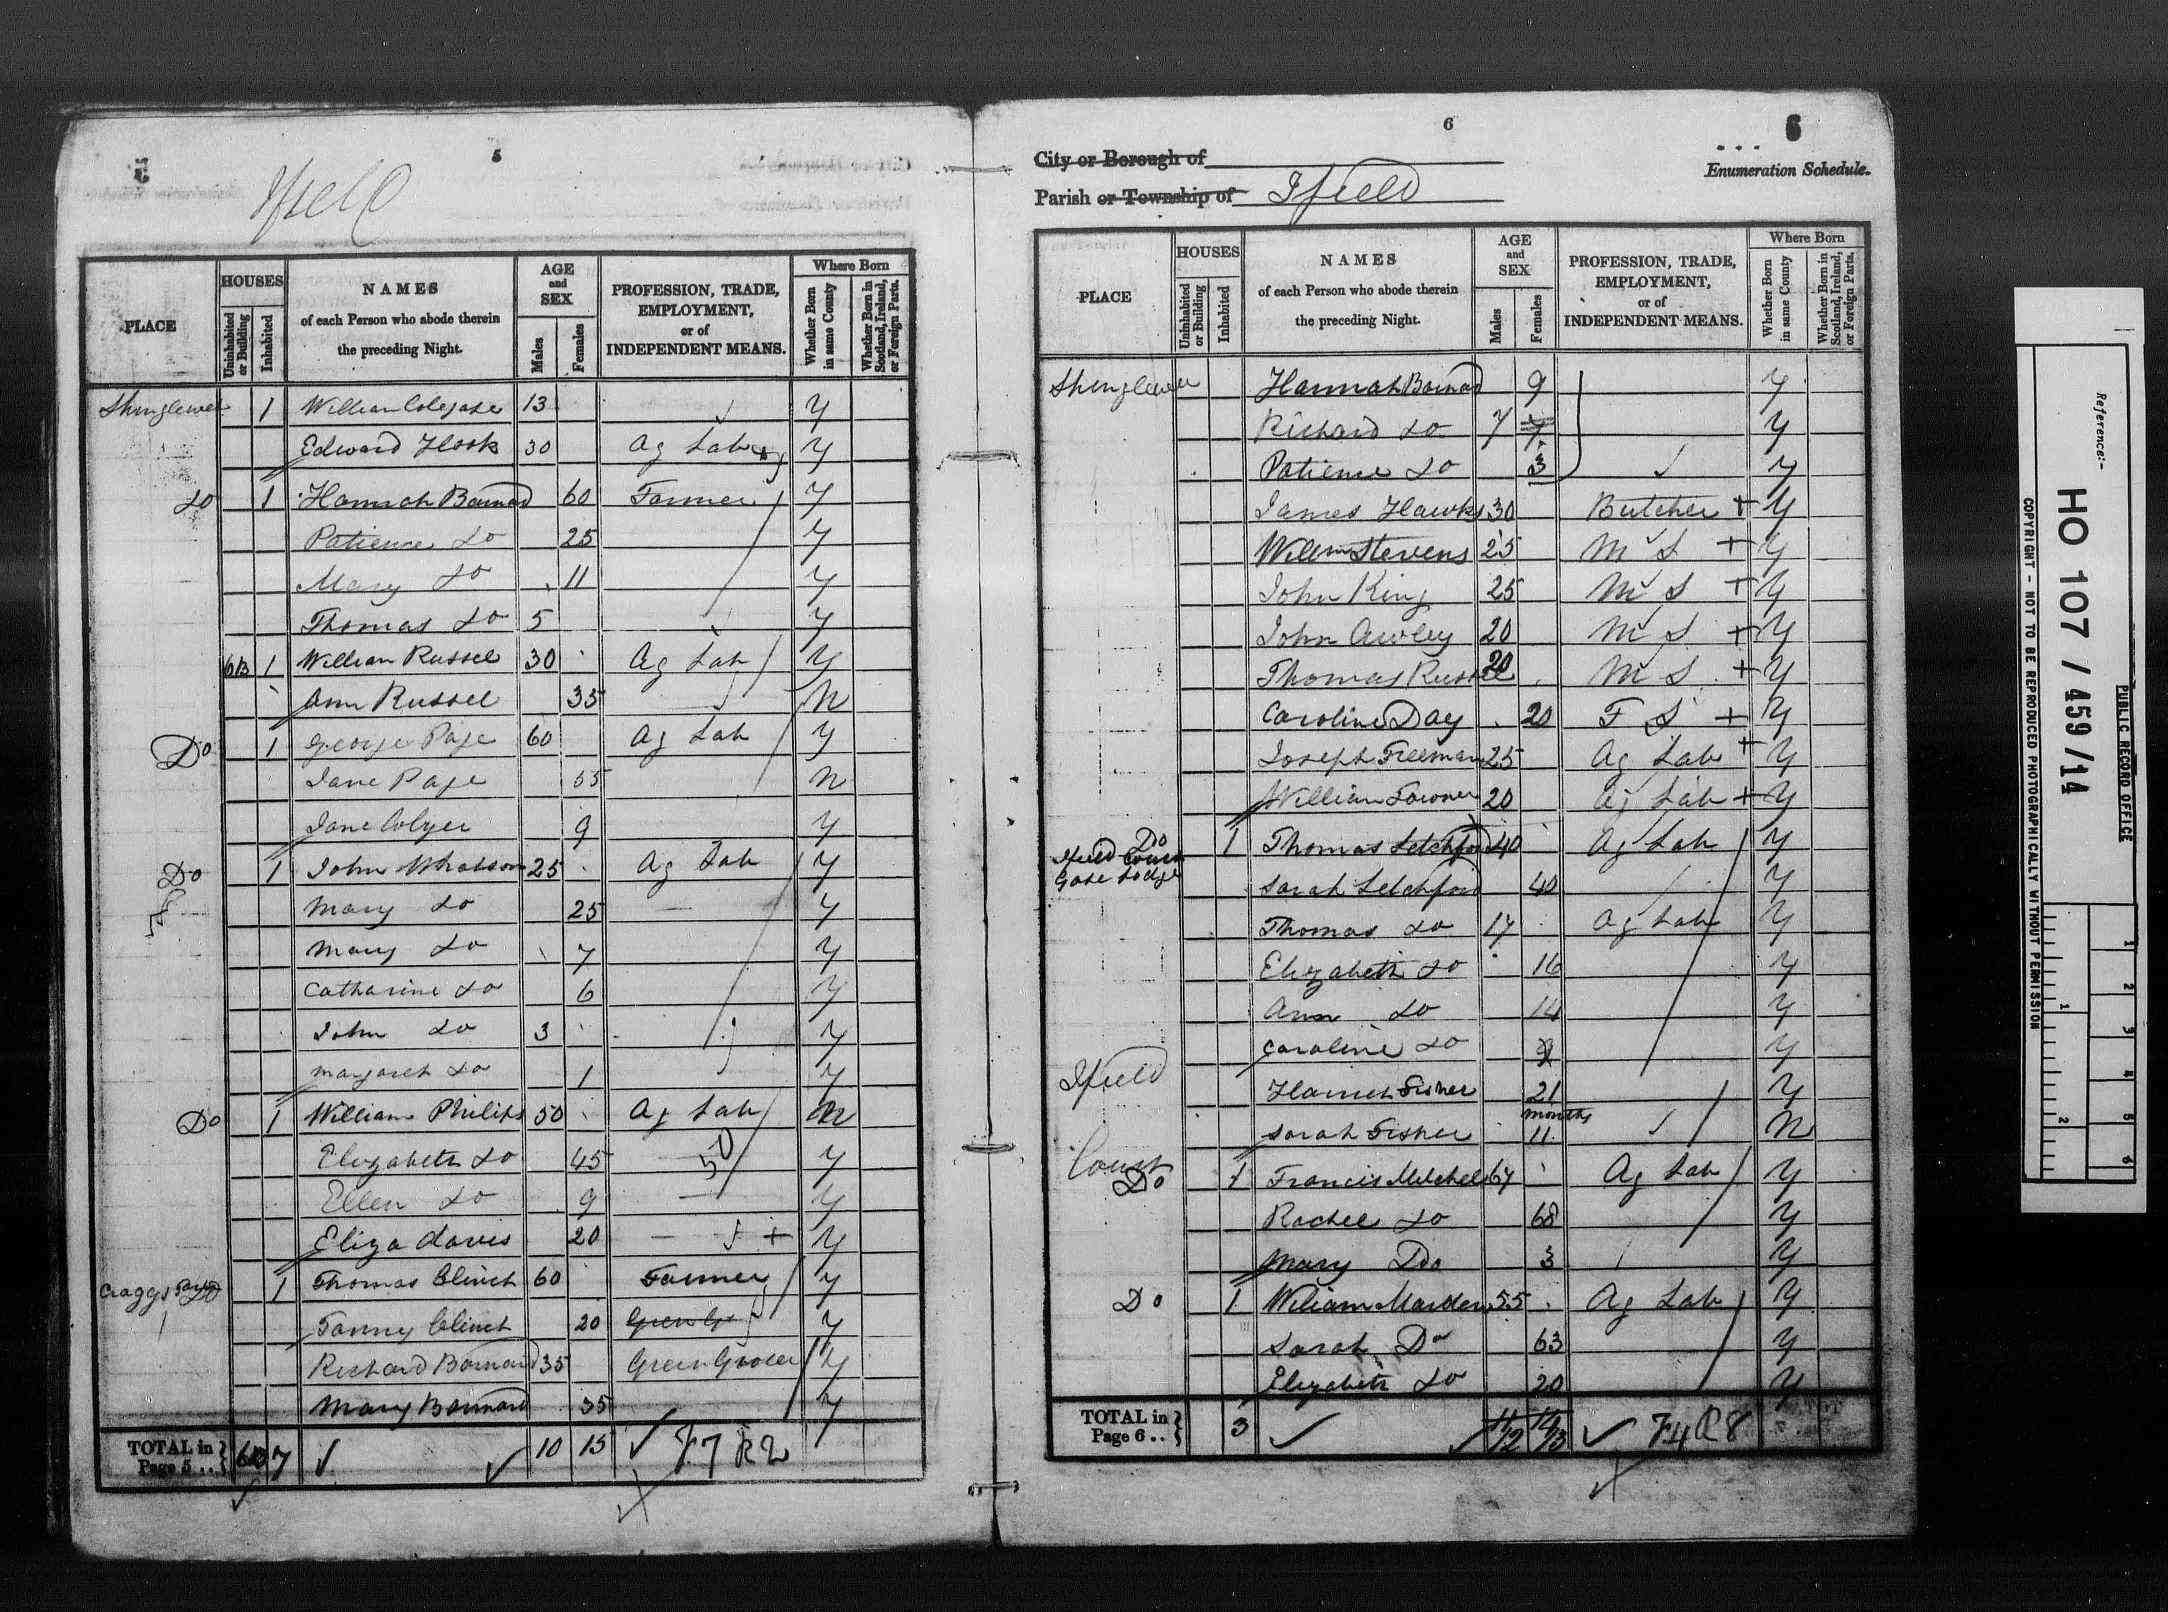 5
5
Ifield
PLACE
HOUSES
Uninhabited or Building
Inhabited
NAMES
of each Person who abode therein
the preceding Night.
AGE
and
SEX
Males
Females
PROFESSION, TRADE,
EMPLOYMENT,
or of
INDEPENDENT MEANS.
Where Born
Whether Born in same County
Whether Born in Scotland, Ireland, or Foreign Parts.
Shinglewell 1 William 13 Y
Edward Hook 30 Ag Lab Y
Do 1 Hannah Barnard 60 Farmer Y
Patience Do 25 Y
Mary Do 11 Y
Thomas Do 5 Y
1 William Russel 30 Ag Lab Y
Ann Russel 35 N
Do 1 George Page 60 Ag Lab Y
Jane Page 55 N
Jane Colyer 9 Y
Do 1 John Whatson 25 Ag Lab Y
Mary Do 25 Y
Mary Do 7 Y
Catharine Do 6 Y
John Do 3 Y
Margaret Do 1 Y
Do 1 William Philips 50 Ag Lab N
Elizabeth Do 45 Y
50
Ellen Do 9 Y
Eliza Davis 20 + Y
Craggs 1 Thomas Clinch 60 Farmer Y
Fanny Clinch 20 Green Gr Y
Richard Barnard 35 Green Grocer Y
Mary Barnard 35 Y
TOTAL in Page 5 .. 7 10 15 F7 R2
6
6
City or Borough of
Parish or Township of Ifield
Enumeration Schedule.
PLACE
HOUSES
Uninhabited or Building
Inhabited
NAMES
of each Person who abode therein
the preceding Night.
AGE
and
SEX
Males
Females
PROFESSION, TRADE,
EMPLOYMENT,
or of
INDEPENDENT MEANS.
Where Born
Whether Born in same County
Whether Born in Scotland, Ireland, or Foreign Parts.
Shinglewell Hannah Barnard 9 Y
Richard Do 7 7 Y
Patience Do 3 Y
James Hawks 30 Butcher + Y
Willm Stevens 25 M S + Y
John King 25 M S + Y
John Awley 20 M S + Y
Thomas Russel 20 M S + Y
Caroline Day 20 F S + Y
Joseph Freeman 25 Ag Lab + Y
William 20 Ag Lab + Y
Do 1 Thomas Letchford 40 Ag Lab Y
Ifield Court
Gate Lodge
Sarah Letchford 40 Y
Thomas Do 17 Ag Lab Y
Elizabeth Do 16 Y
Ann Do 14 Y
Caroline Do Y
Ifield
Harriet Fisher 21 Y
months
Sarah Fisher 11 N
Court
Do 1 Francis Mitchel 67 Ag Lab Y
Rachel Do 68 Y
Mary Do 3 Y
Do 1 William Marden 55 Ag Lab Y
Sarah Do 63 Y
Elizabeth Do 20 Y
TOTAL in Page 6 .. 3 11 12 14 13 F4 R8
Reference:-
HO 107 / 459/14
PUBLIC RECORD OFFICE
COPYRIGHT - NOT TO BE REPRODUCED PHOTOGRAPHICALLY WITHOUT PERMISSION
1 2 3 4 5 6
1 2